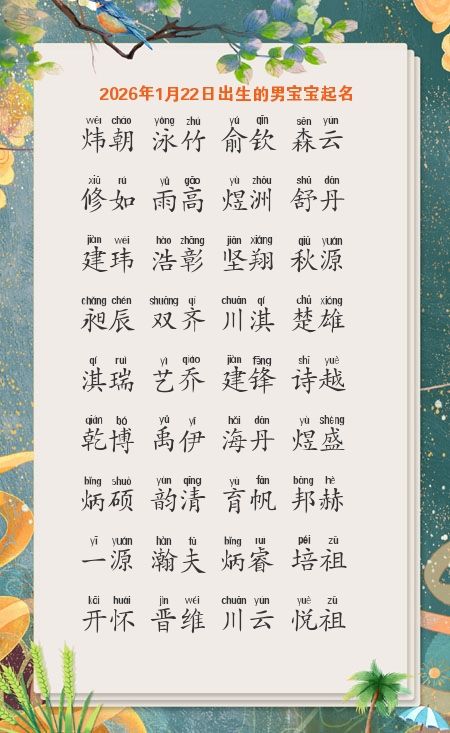 2026年1月22日出生的男宝宝起名
wěi cháo yǒng zhú yú qīn sēn yún
炜朝 泳竹 俞钦 森云
xiū rú yǔ gāo yù zhōu shū dān
修如 雨高 煜洲 舒丹
jiàn wěi hào zhāng jiān xiáng qiū yuán
建玮 浩彰 坚翔 秋源
chǎng chén shuāng qí chuān qí chǔ xióng
昶辰 双齐 川淇 楚雄
qí ruì yì qiáo jiàn fēng shī yuè
淇瑞 艺乔 建锋 诗越
qián bó yǔ yī hǎi dān yù shèng
乾博 禹伊 海丹 煜盛
bǐng shuò yùn qīng yù fān bāng hè
炳硕 韵清 育帆 邦赫
yī yuán hàn fū bǐng ruì péi zǔ
一源 瀚夫 炳睿 培祖
kāi huái jìn wéi chuān yún yuè zǔ
开怀 晋维 川云 悦祖